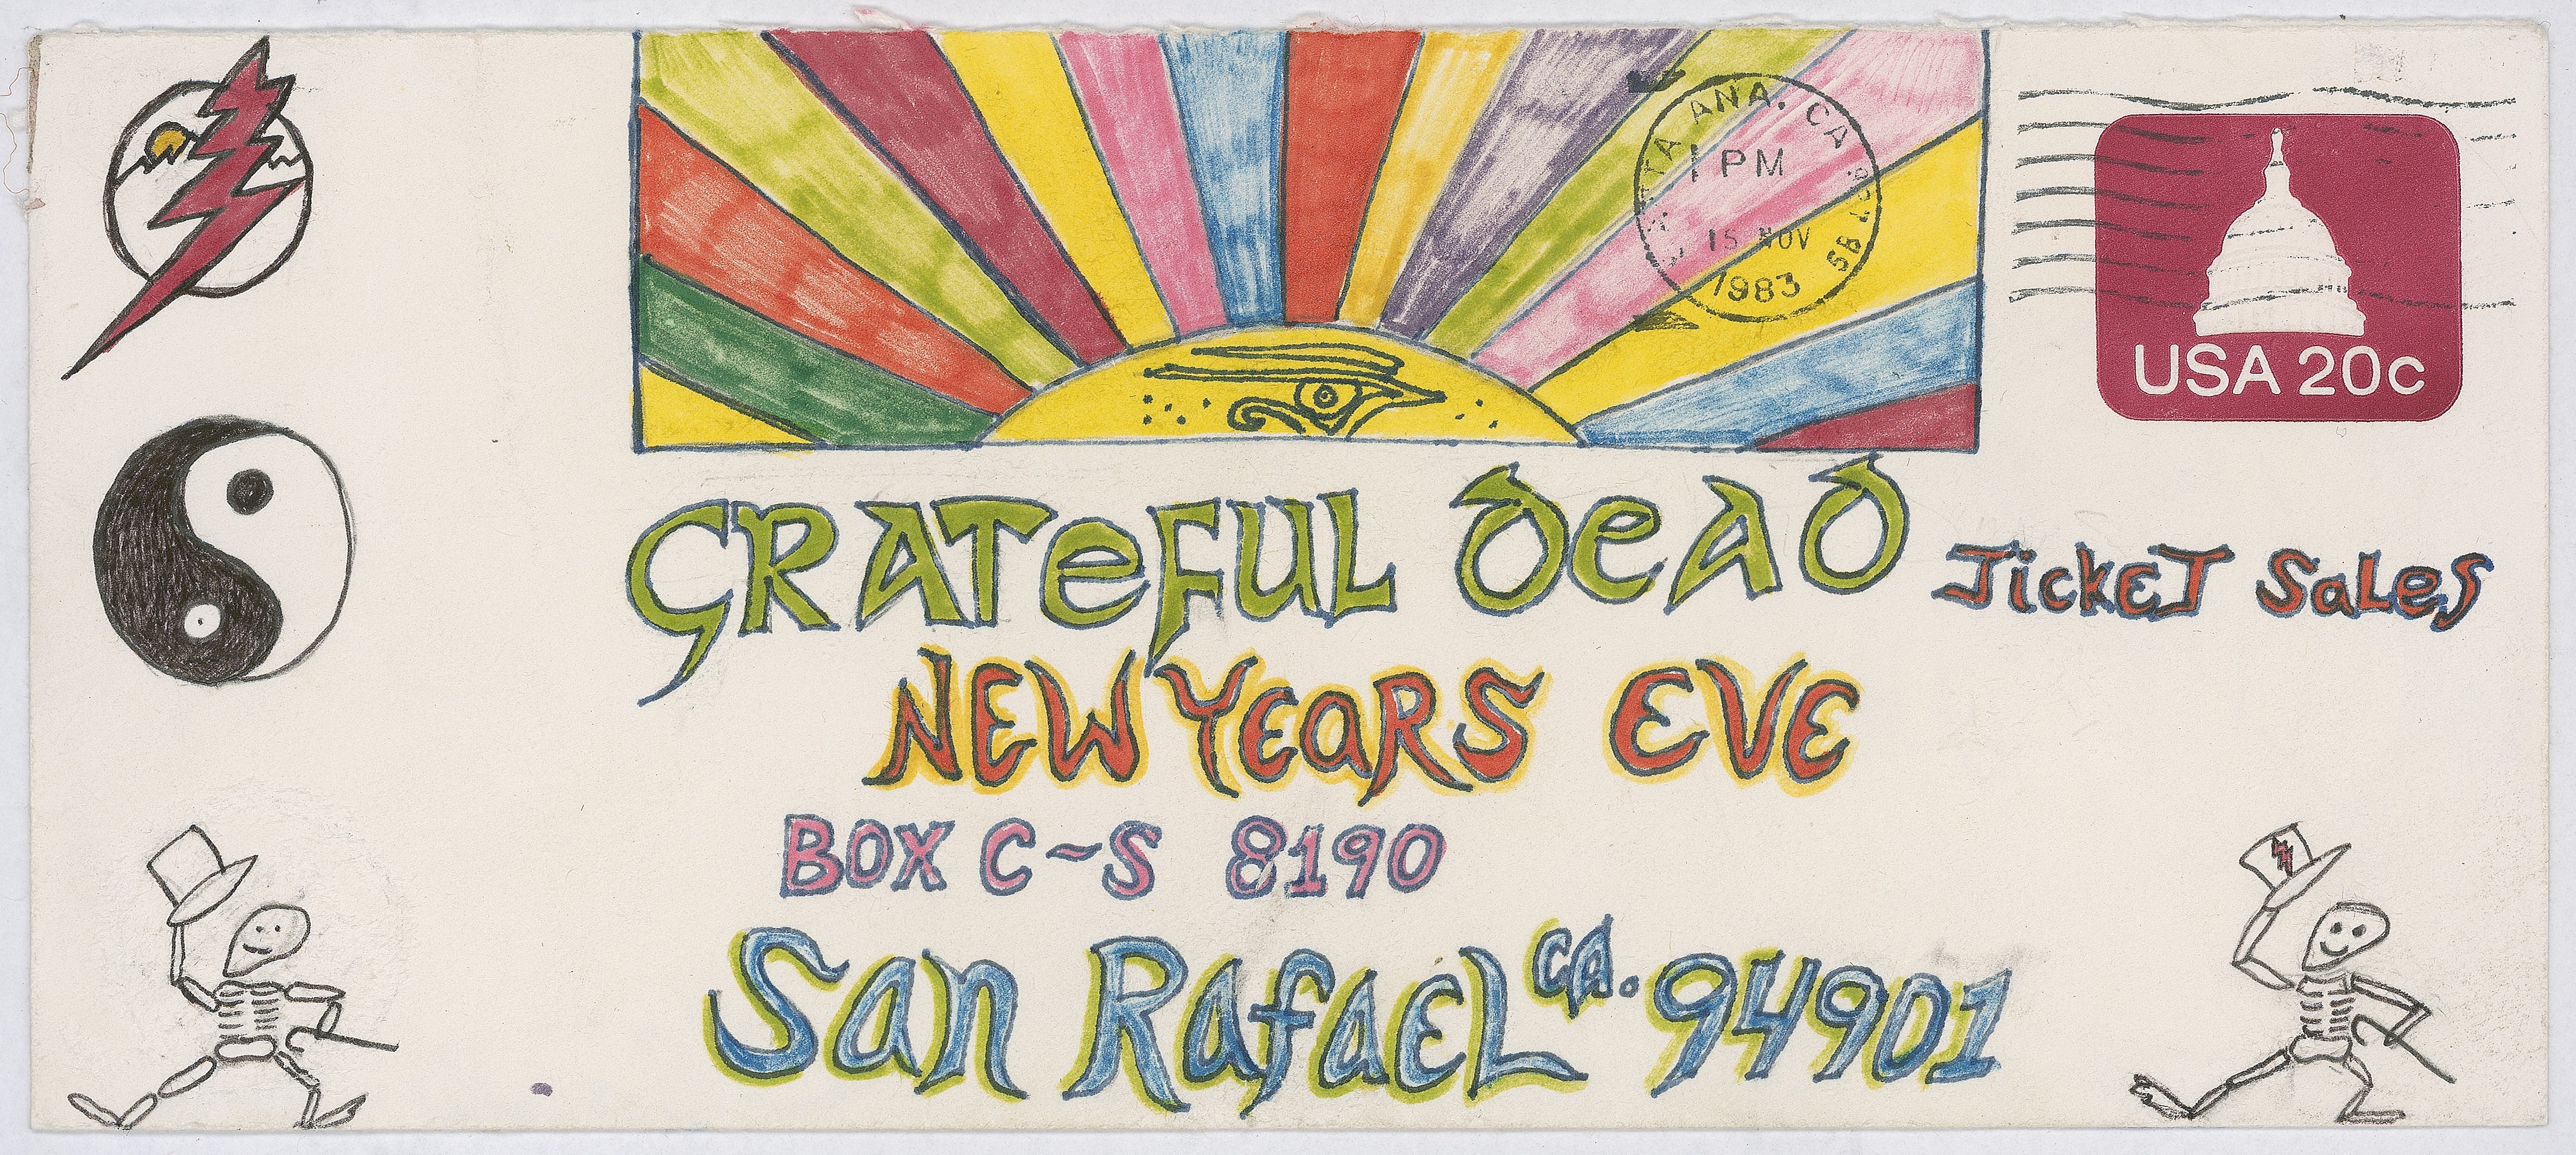 SANTA ANA, CA
1 PM
15 NOV
1983
USA 20c
GRATeFUL DeaD Ticket Sales
NEW YEaRS EVE
BOX C~S 8190
San RafaEL CA. 94901